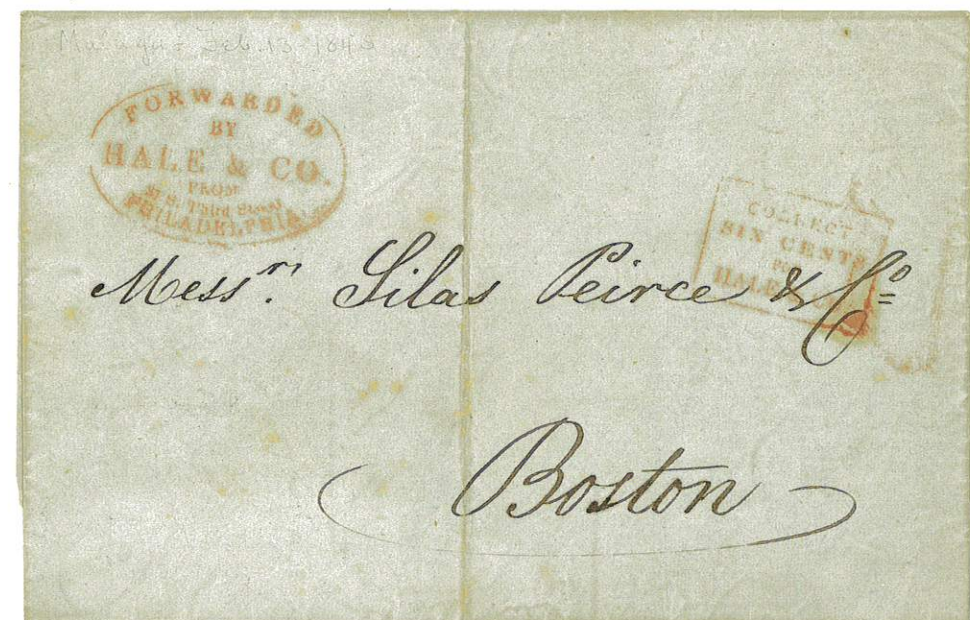 Malaga: Feb. 13-184
FORWARDED
BY
HALE & CO.
FROM
S. Third Street
PHILADELPHIA
COLLECT
SIX CENTS
FOR
HALE &
Messrs. Silas Peirce & Co
Boston